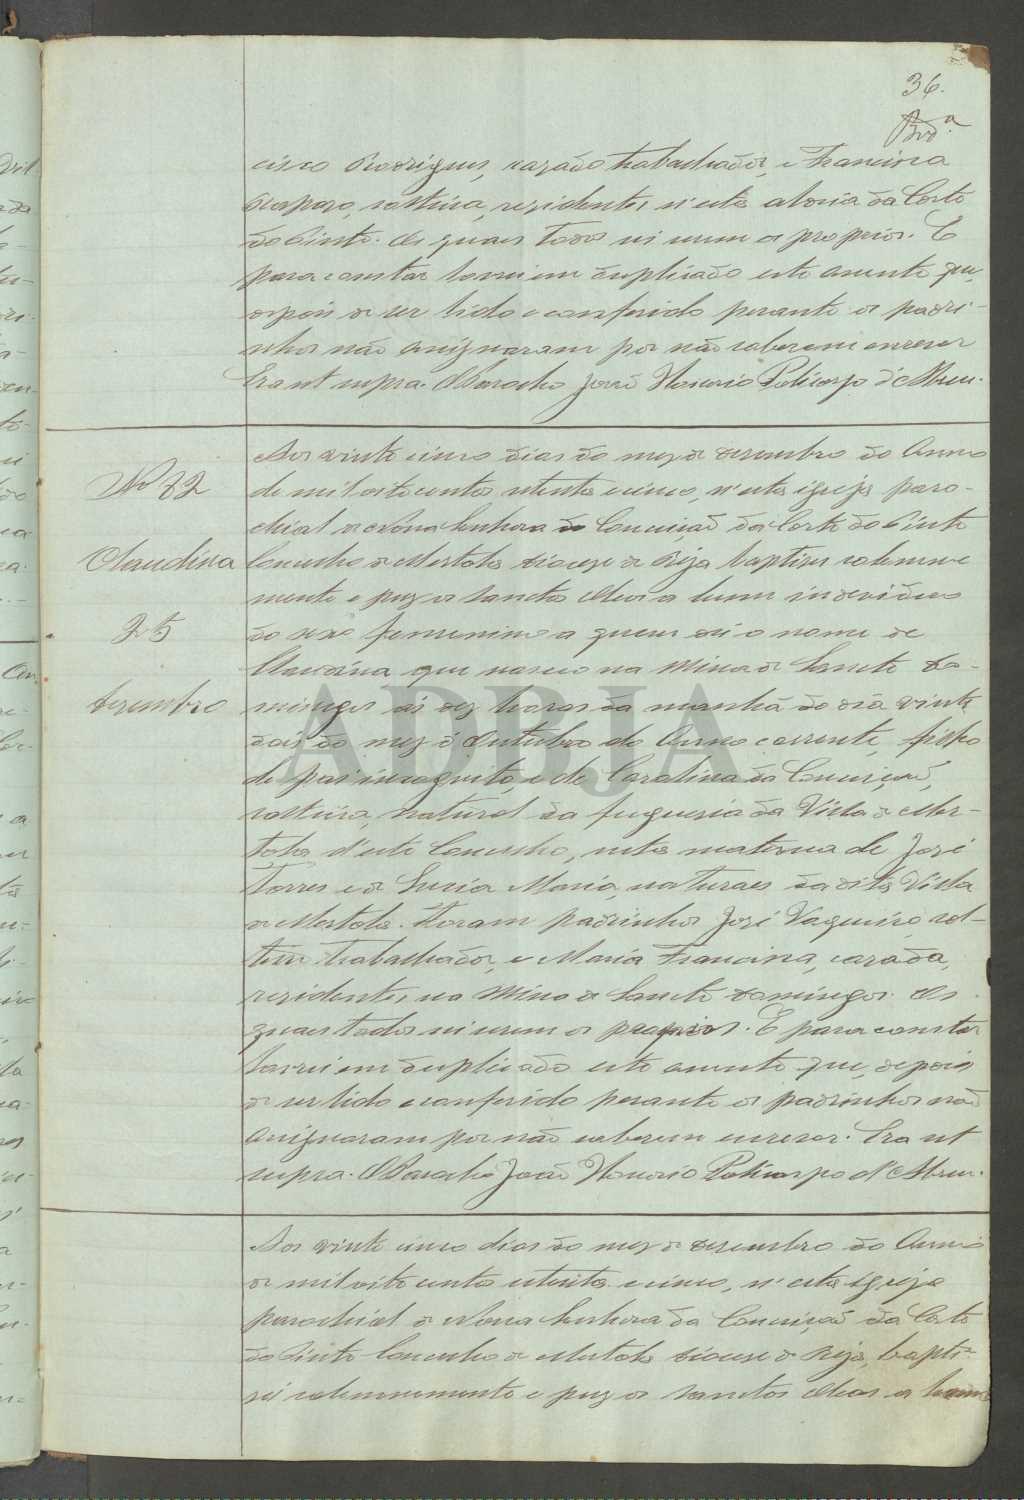 36.
cisco Rodrigues, casado trabalhador, e Francisca
Raposo, solteira, residentes n'esta aldeia da Corte
do Pinto. Os quaes todos sei serem os proprios. E
para constar lavrei em duplicado este assento que,
depois de ser lido e conferido perante os padri-
nhos não assignaram por não saberem escrever
Era ut supra. O Parocho João Honorio Policarpo d'Abreu.
Aos vinte cinco dias do mez de Dezembro do Anno
de mil oito centos setenta e cinco, n'esta igreja paro-
chial de Nossa Senhora da Conceição da Corte do Pinto
Concelho de Mertola diocese de Beja baptisei solemne-
mente e puz os sanctos Oleos a hum individuo
do sexo femenino a quem dei o nome de
Claudina que nasceu na Mina de Sancto Do-
mingos ás dez horas da manhã do dia vinte
dois do mez d'Outubro do Anno corrente, filha
de pai incognito, e de Carolina da Conceição,
solteira, natural da freguesia da Villa de Mer-
tola d'este Concelho, neta materna de José
Torres e de Luzia Maria, naturaes da dita Villa
de Mertola. Foram padrinhos José Vaqueiro, sol-
teiro trabalhador, e Maria Francisca, casada,
residentes na Mina de Sancto Domingos. Os
quaes todos sei serem os proprios. E para constar
lavrei em duplicado este assento que, depois
de ser lido e conferido perante os padrinhos não
assignaram por não saberem escrever. Era ut
supra. O Parocho João Honorio Policarpo d'Abreu.
Nº 32
Claudina
25
Dezembro
Aos vinte cinco dias do mez de Dezembro do Anno
de mil oito centos setenta e cinco, n'esta igreja
parochial de Nossa Senhora da Conceição da Corte
do Pinto Concelho de Mertola diocese de Beja, bapti-
sei solemnemente e puz os sanctos Oleos a hum
ADBJA